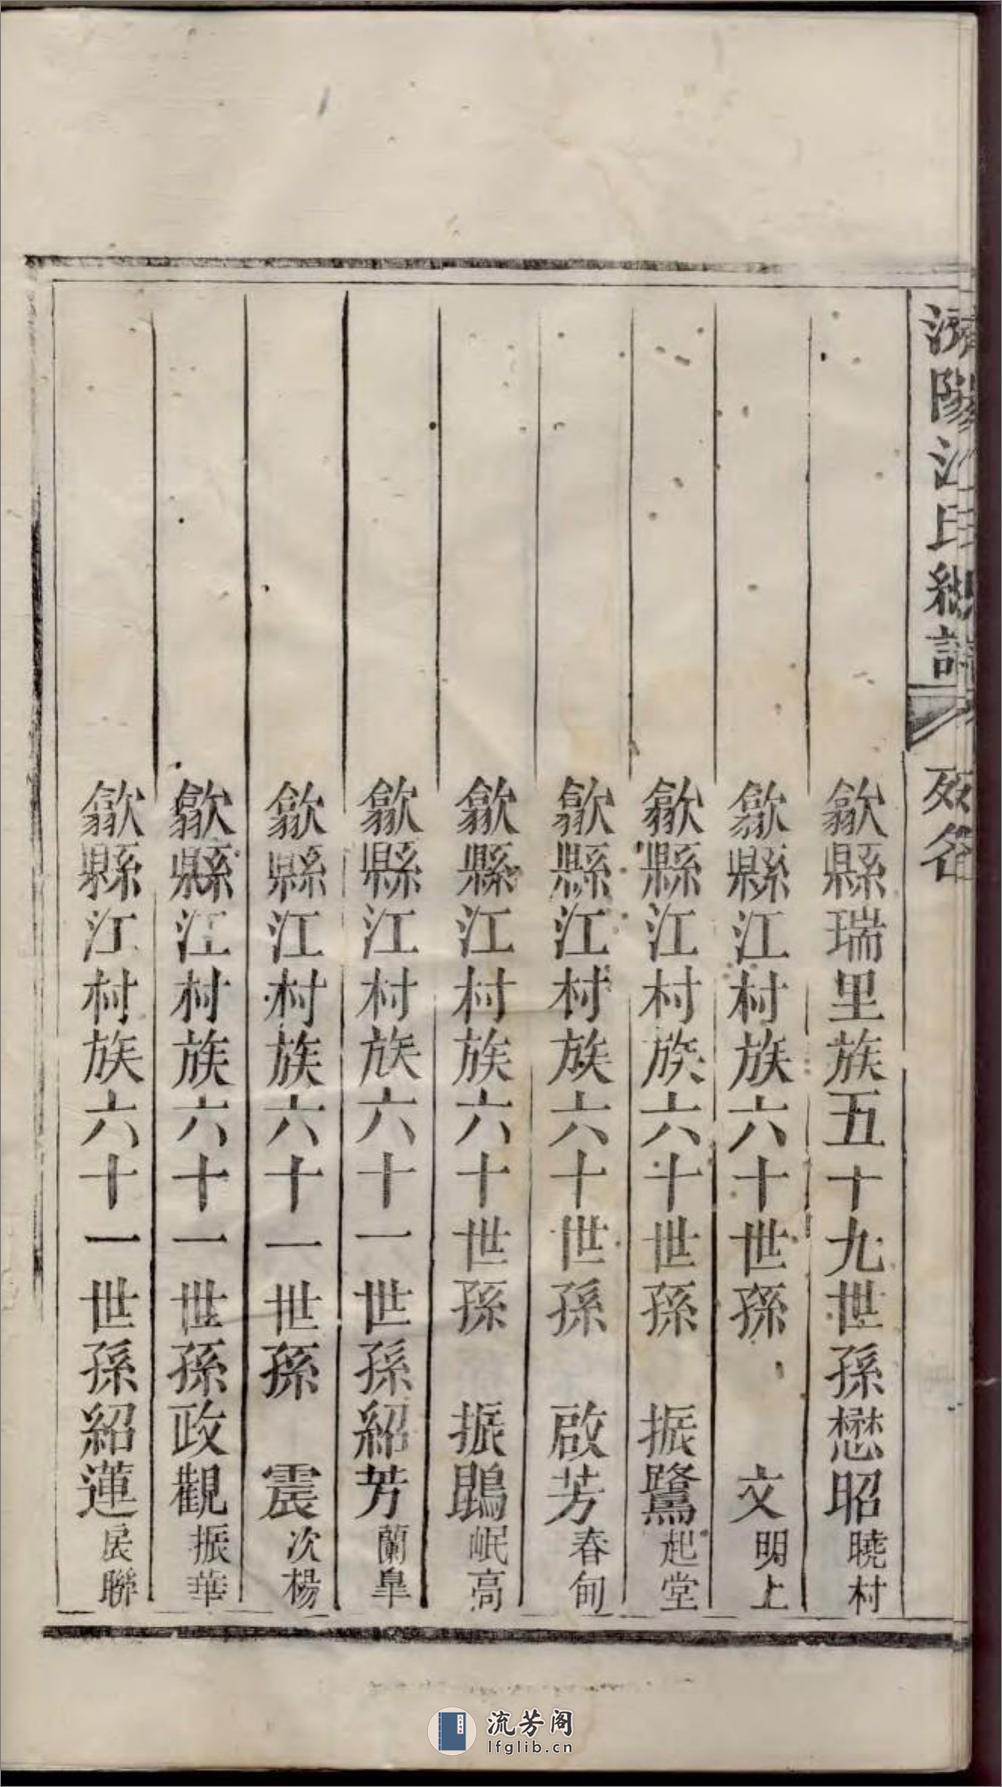 濟陽江氏統譜
列名
歙縣瑞里族五十九世孫懋昭曉村
歙縣江村族六十世孫 文明上
歙縣江村族六十世孫 振鷺起堂
歙縣江村族六十世孫 啟芳春甸
歙縣江村族六十世孫 振鵾岷高
歙縣江村族六十一世孫紹芳蘭臯
歙縣江村族六十一世孫 震次楊
歙縣江村族六十一世孫政觀振華
歙縣江村族六十一世孫紹蓮宸聯
流芳阁
lfglib.cn